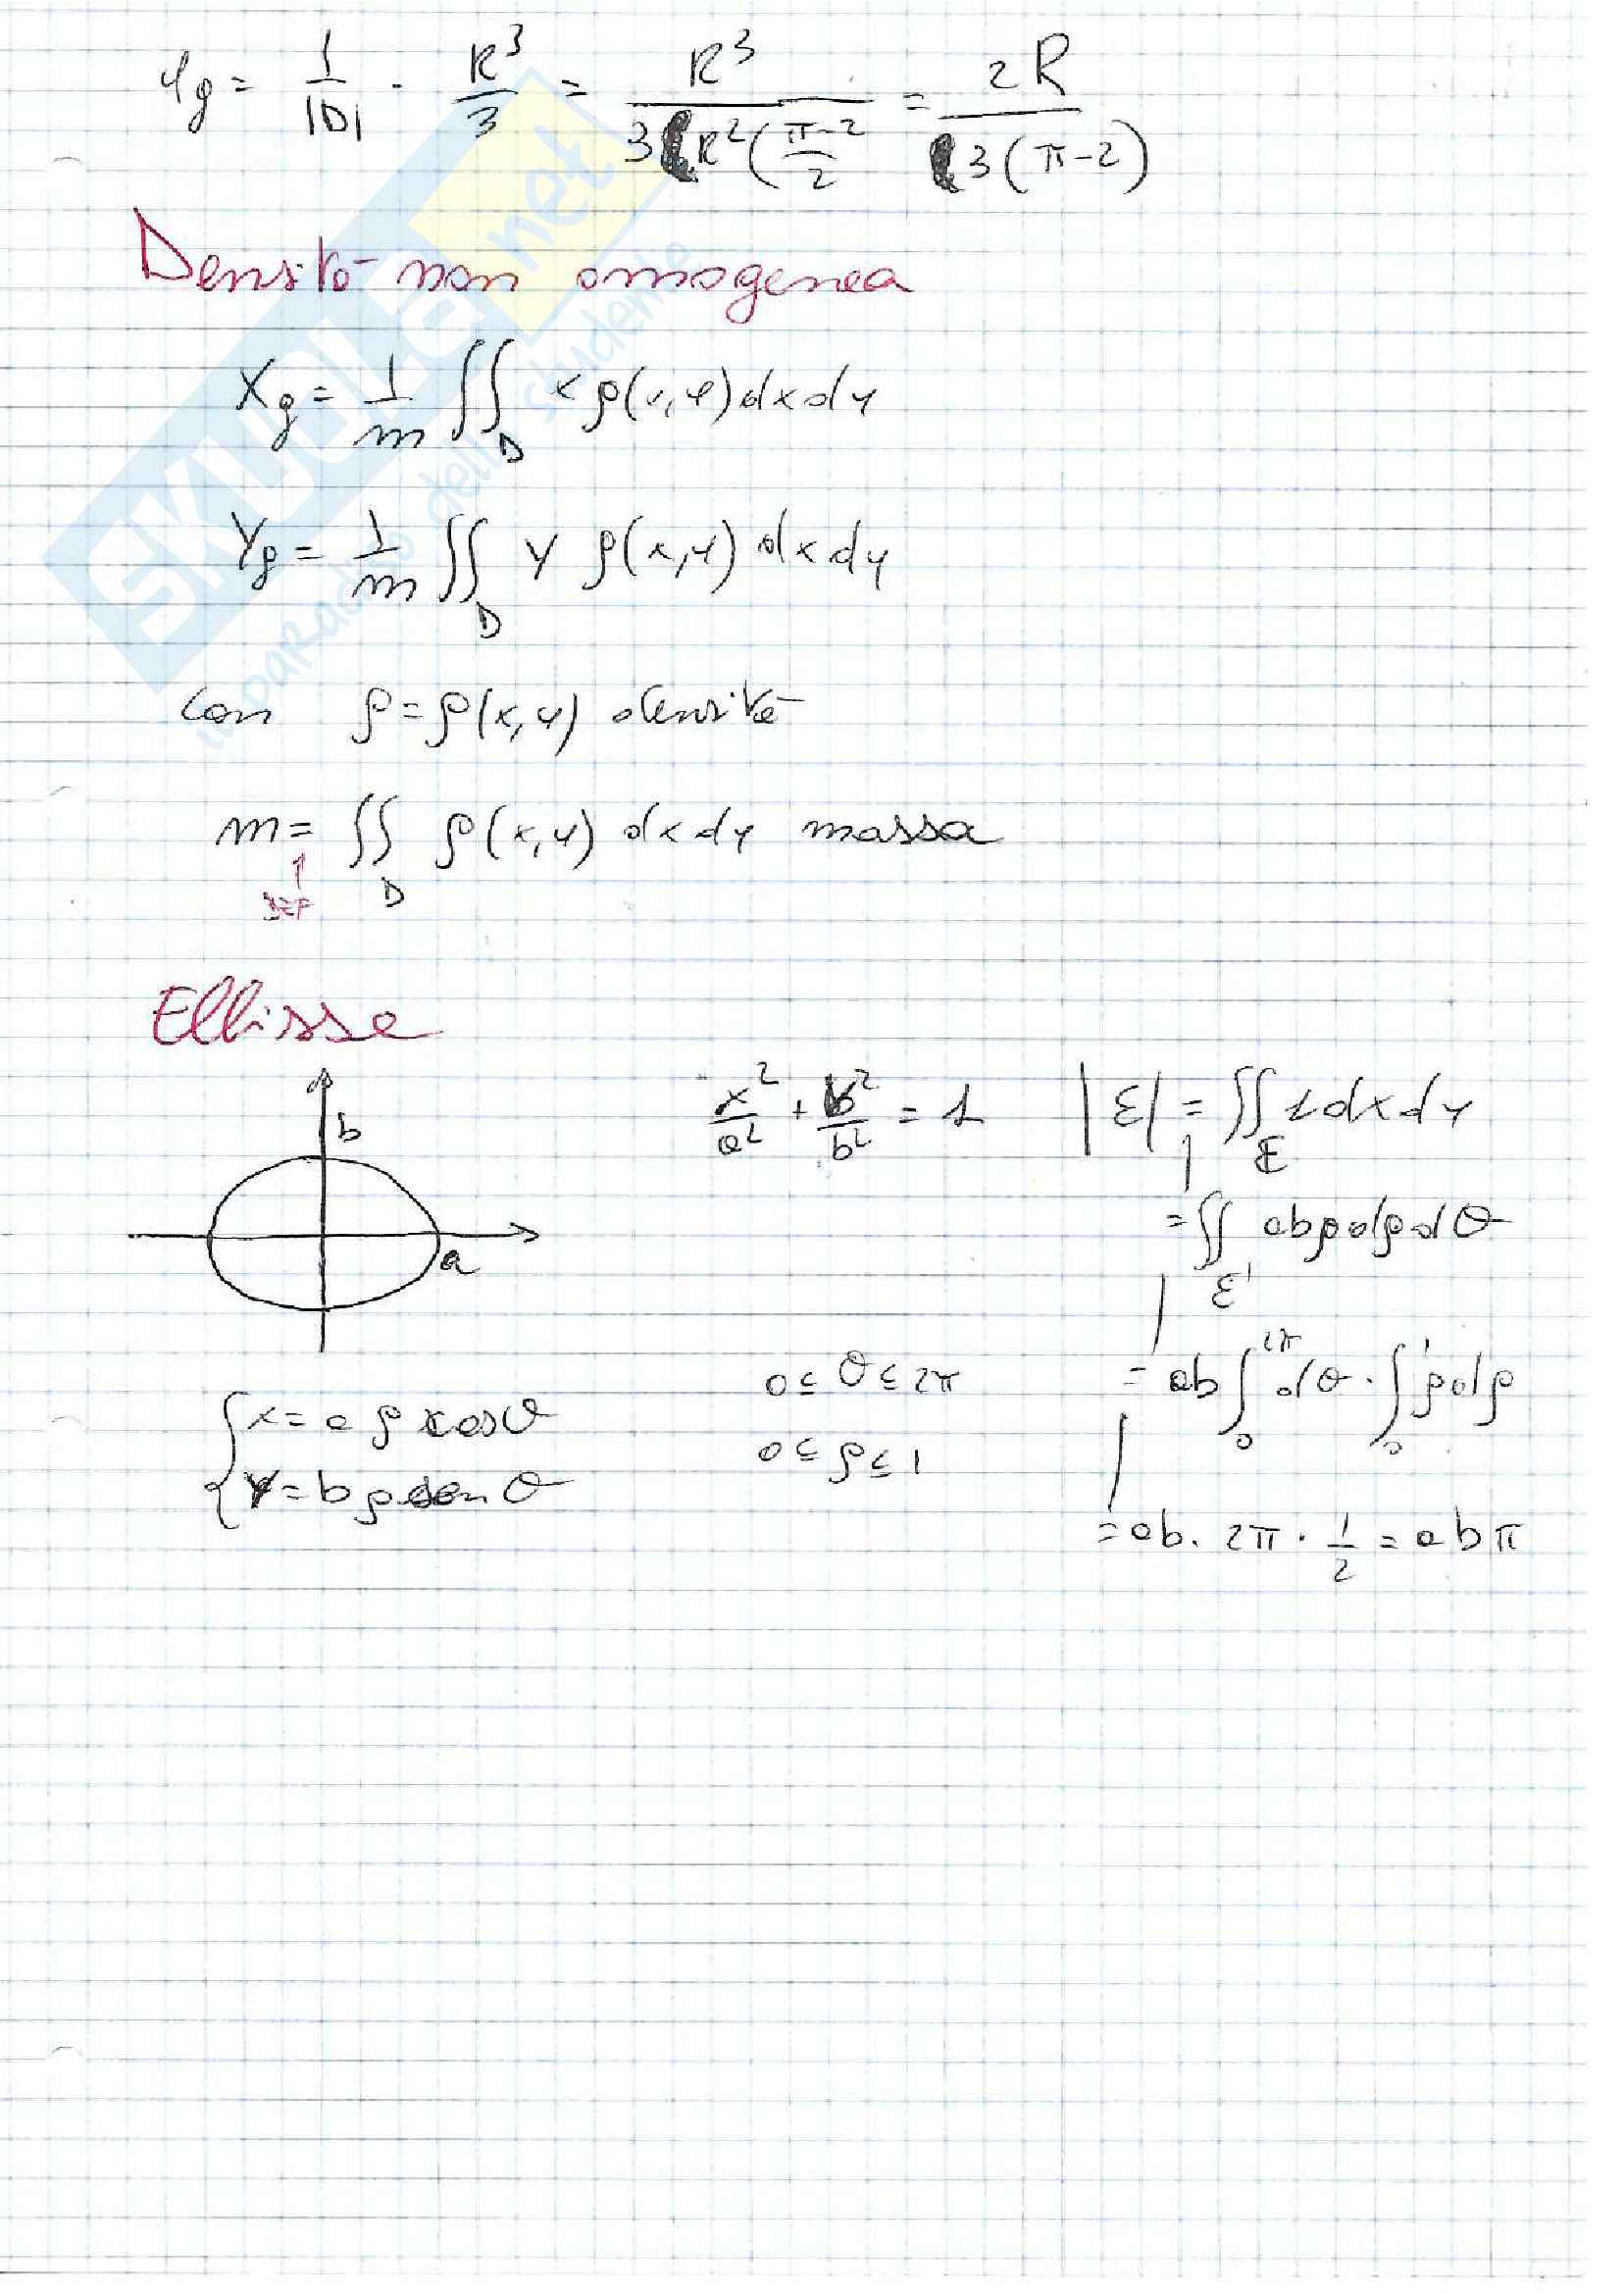 Yg = 1/|D| · R³/3 = R³/3R²(π-2/2 = 2R/3(π-2)
Densità non omogenea
Xg = 1/m ∬_D x ρ(x,y) dx dy
Yg = 1/m ∬_D y ρ(x,y) dx dy
con ρ = ρ(x,y) densità
m = ∬_D ρ(x,y) dx dy massa
DEF
Ellisse
b
a
x²/a² + y²/b² = 1
|E| = ∬_E 1 dx dy
= ∬_E' abρ dρ dθ
= ab ∫_0^2π dθ · ∫_0^1 ρ dρ
= ab · 2π · 1/2 = abπ
{ x = a ρ cosθ
{ y = b ρ sen θ
0 ≤ θ ≤ 2π
0 ≤ ρ ≤ 1
SKUOLA.net
il paradiso dello studente